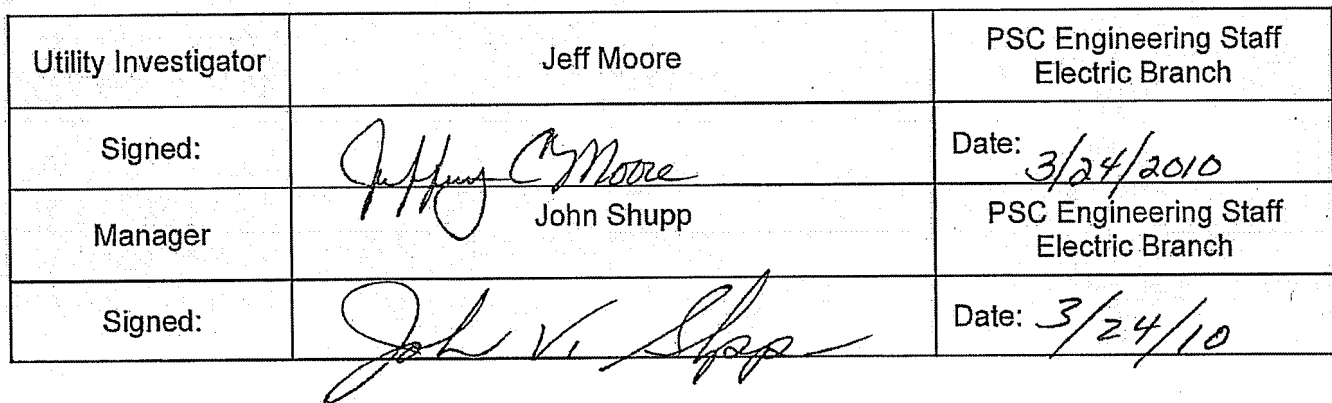 Utility Investigator Jeff Moore PSC Engineering Staff
Electric Branch
Signed: Jeffrey C Moore Date: 3/24/2010
Manager John Shupp PSC Engineering Staff
Electric Branch
Signed: John V. Shupp Date: 3/24/10